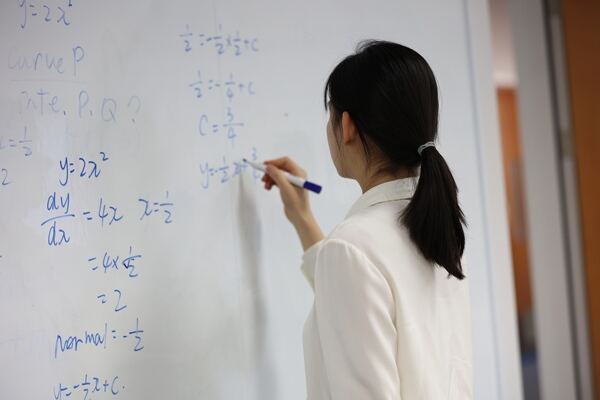 y=2x²
Curve P
Inte. P. Q?
x=1/2
y=2x²
dy/dx = 4x x=1/2
= 4x1/2
= 2
normal = -1/2
y=-1/2x+C.
1/2=-1/2x1/2+C
1/2=-1/4+C
C=3/4
y=-1/2x+3